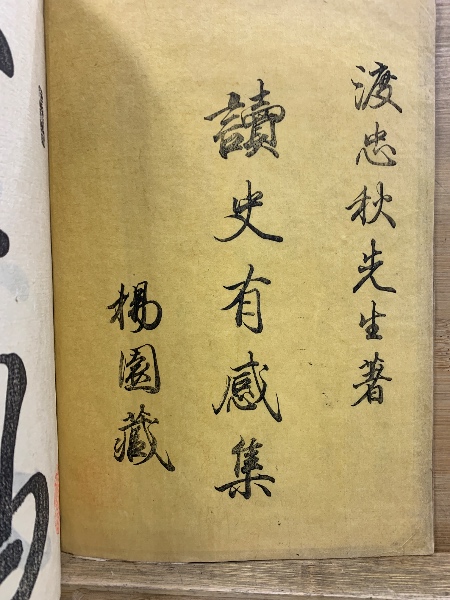 渡忠秋先生著
讀史有感集
楊園藏